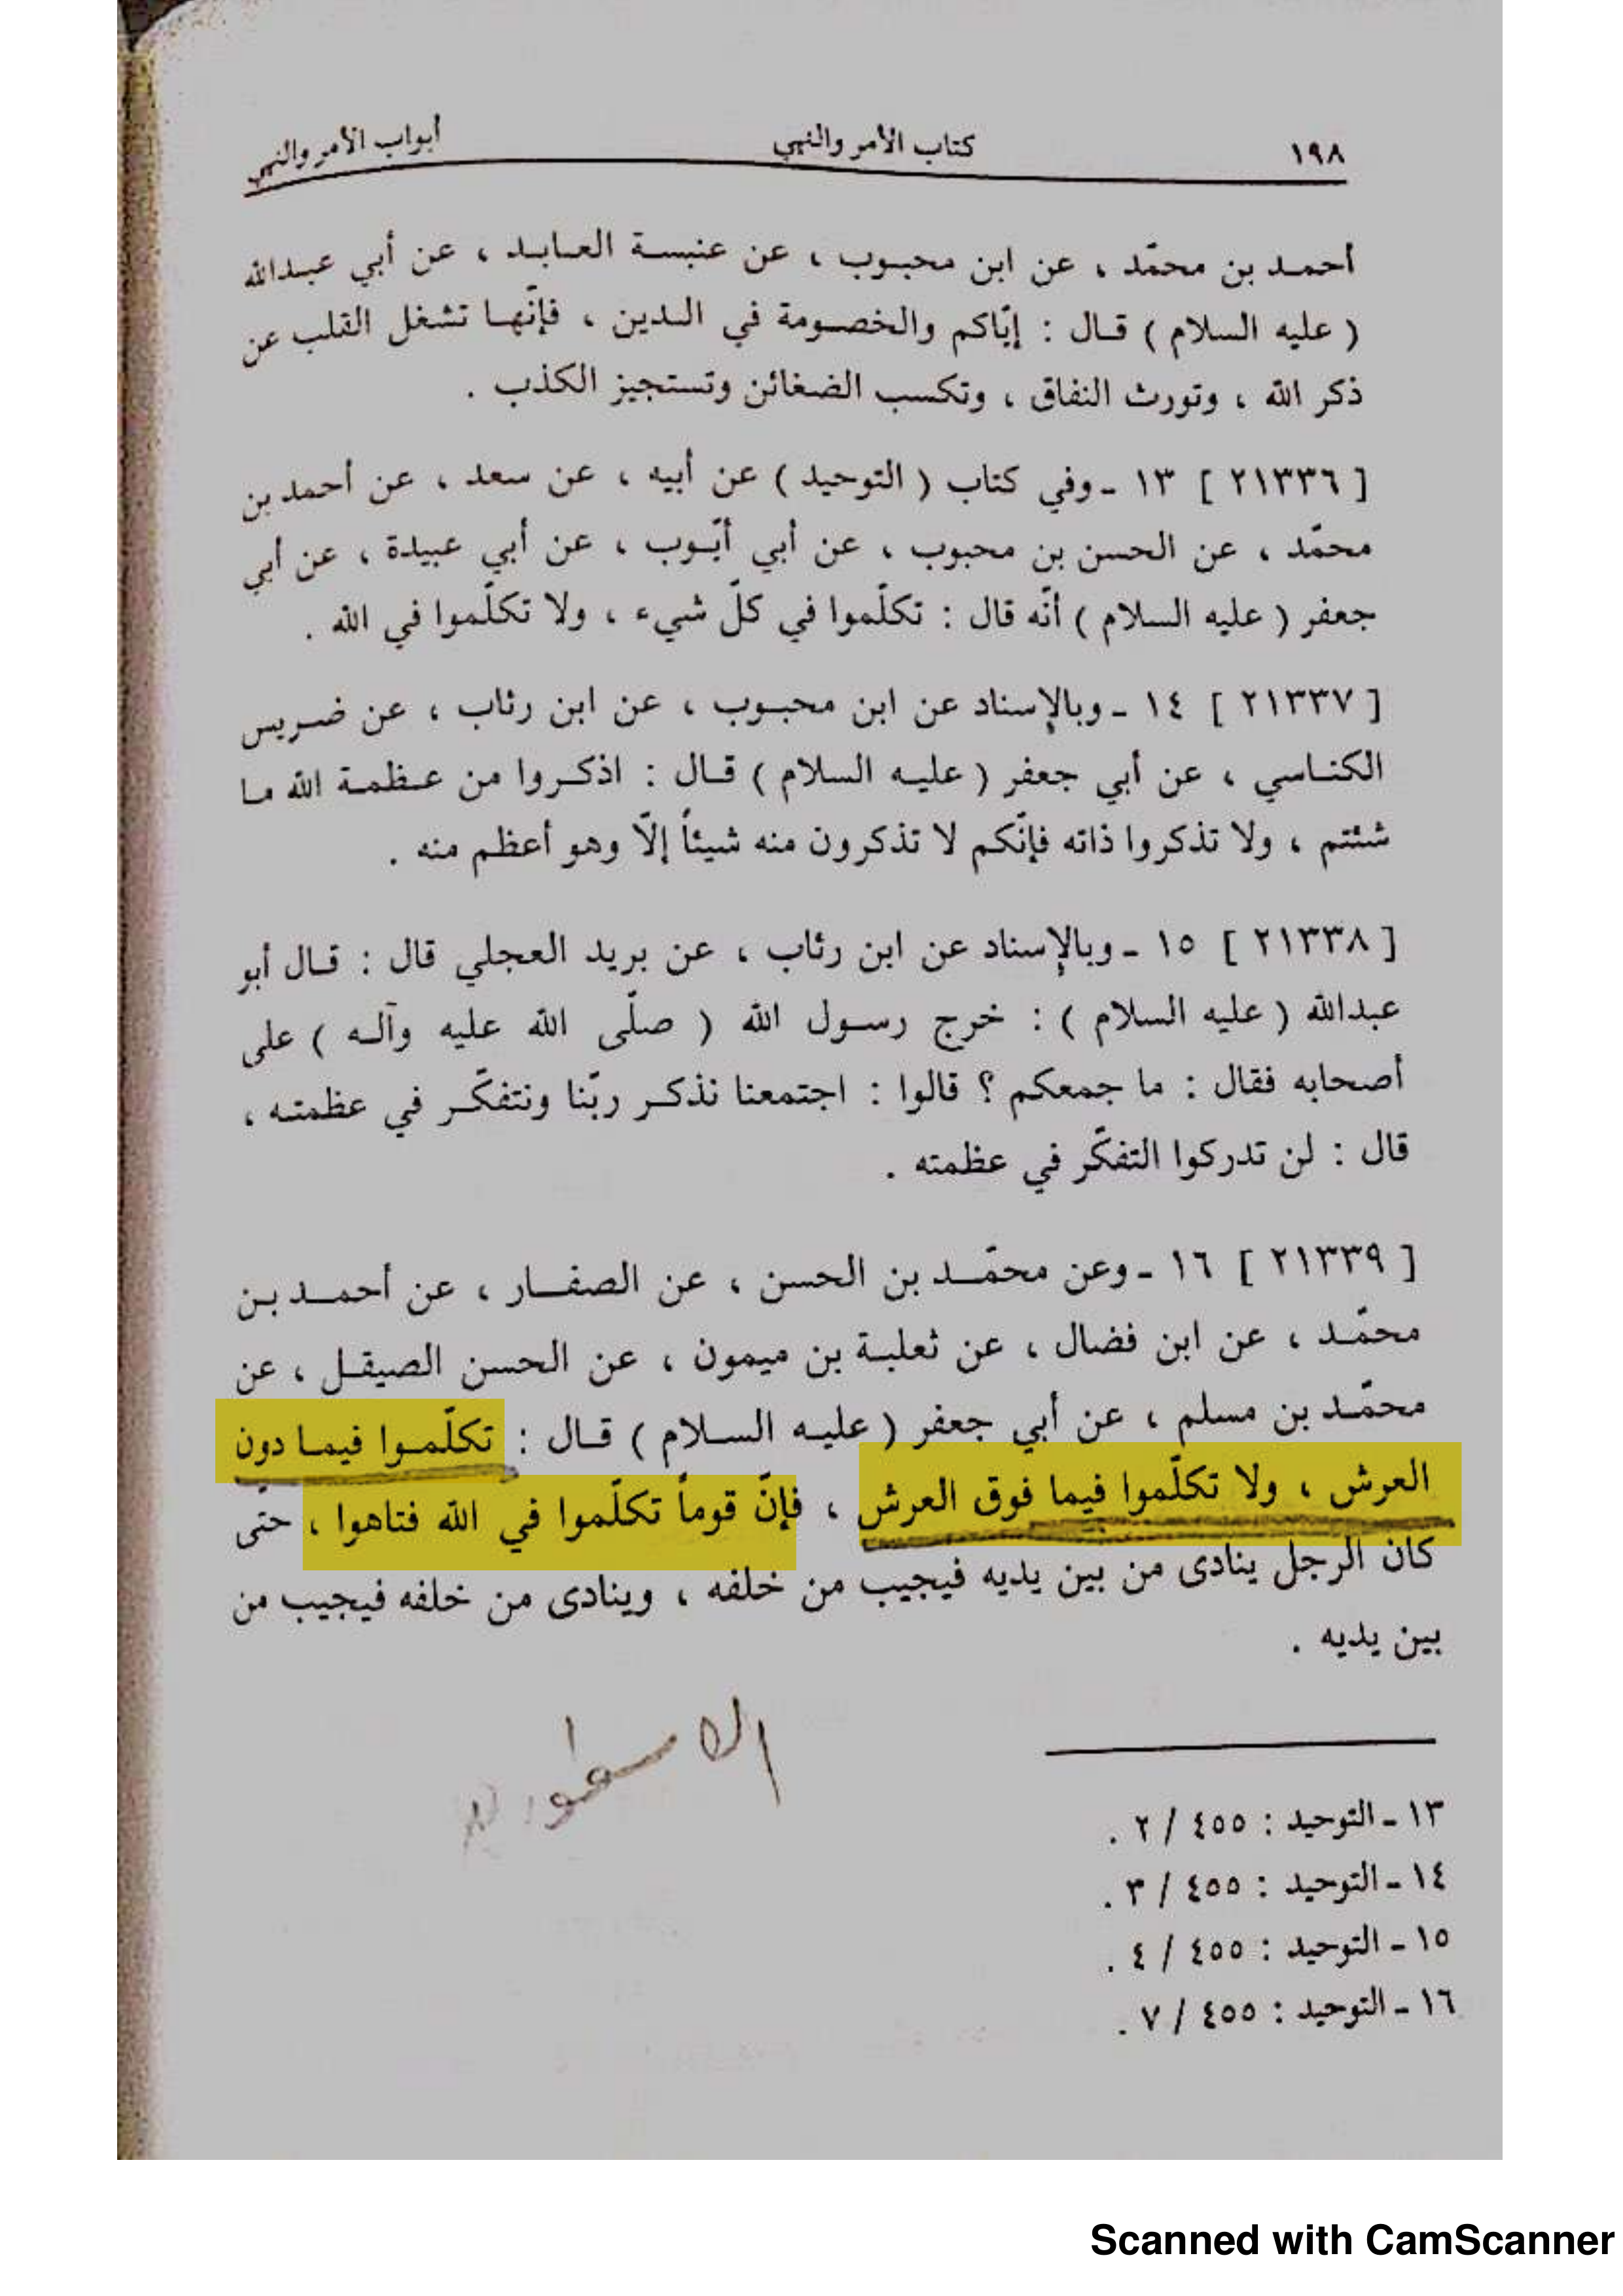 ١٩٨ كتاب الأمر والنهي أبواب الأمر والنهي
أحمد بن محمّد ، عن ابن محبوب ، عن عنبسة العابد ، عن أبي عبدالله
( عليه السلام ) قال : إيّاكم والخصومة في الدين ، فإنّها تشغل القلب عن
ذكر الله ، وتورث النفاق ، وتكسب الضغائن وتستجيز الكذب .
[ ٢١٣٣٦ ] ١٣ ـ وفي كتاب ( التوحيد ) عن أبيه ، عن سعد ، عن أحمد بن
محمّد ، عن الحسن بن محبوب ، عن أبي أيّوب ، عن أبي عبيدة ، عن أبي
جعفر ( عليه السلام ) أنّه قال : تكلّموا في كلّ شيء ، ولا تكلّموا في الله .
[ ٢١٣٣٧ ] ١٤ ـ وبالإسناد عن ابن محبوب ، عن ابن رئاب ، عن ضريس
الكناسي ، عن أبي جعفر ( عليه السلام ) قال : اذكروا من عظمة الله ما
شئتم ، ولا تذكروا ذاته فإنّكم لا تذكرون منه شيئاً إلّا وهو أعظم منه .
[ ٢١٣٣٨ ] ١٥ ـ وبالإسناد عن ابن رئاب ، عن بريد العجلي قال : قال أبو
عبدالله ( عليه السلام ) : خرج رسول الله ( صلّى الله عليه وآله ) على
أصحابه فقال : ما جمعكم ؟ قالوا : اجتمعنا نذكر ربّنا ونتفكّر في عظمته ،
قال : لن تدركوا التفكّر في عظمته .
[ ٢١٣٣٩ ] ١٦ ـ وعن محمّد بن الحسن ، عن الصفار ، عن أحمد بن
محمّد ، عن ابن فضال ، عن ثعلبة بن ميمون ، عن الحسن الصيقل ، عن
محمّد بن مسلم ، عن أبي جعفر ( عليه السلام ) قال : تكلّموا فيما دون
العرش ، ولا تكلّموا فيما فوق العرش ، فإنّ قوماً تكلّموا في الله فتاهوا ، حتّى
كان الرجل ينادى من بين يديه فيجيب من خلفه ، وينادى من خلفه فيجيب من
بين يديه .
١٣ ـ التوحيد : ٤٥٥ / ٢ .
١٤ ـ التوحيد : ٤٥٥ / ٣ .
١٥ ـ التوحيد : ٤٥٥ / ٤ .
١٦ ـ التوحيد : ٤٥٥ / ٧ .
Scanned with CamScanner